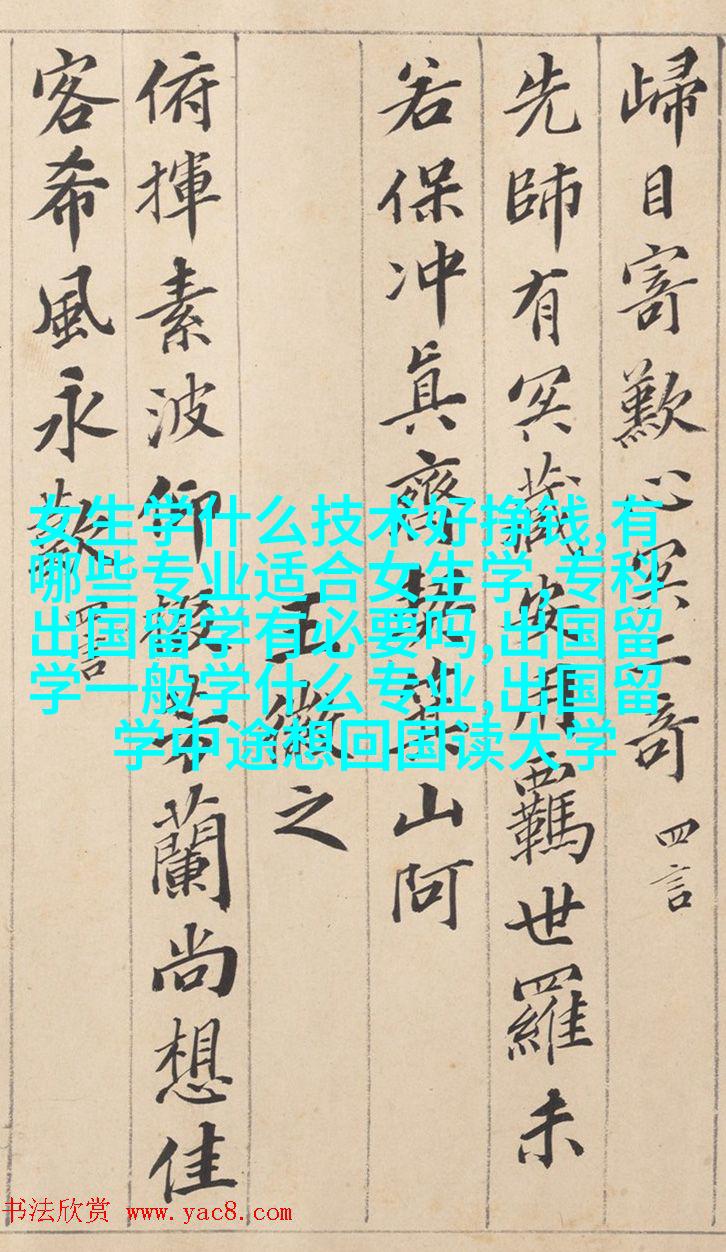 歸目寄歎心冥二奇 四言
先師有冥藏安用羈世羅未
若保冲眞齊契箕山阿
王徽之
俯揮素波仰掇芳蘭尚想佳
客希風永歎 四言
女生学什么技术好挣钱,有
哪些专业适合女生学,专科
出国留学有必要吗,出国留
学一般学什么专业,出国留
学中途想回国读大学
书法欣赏 www.yac8.com